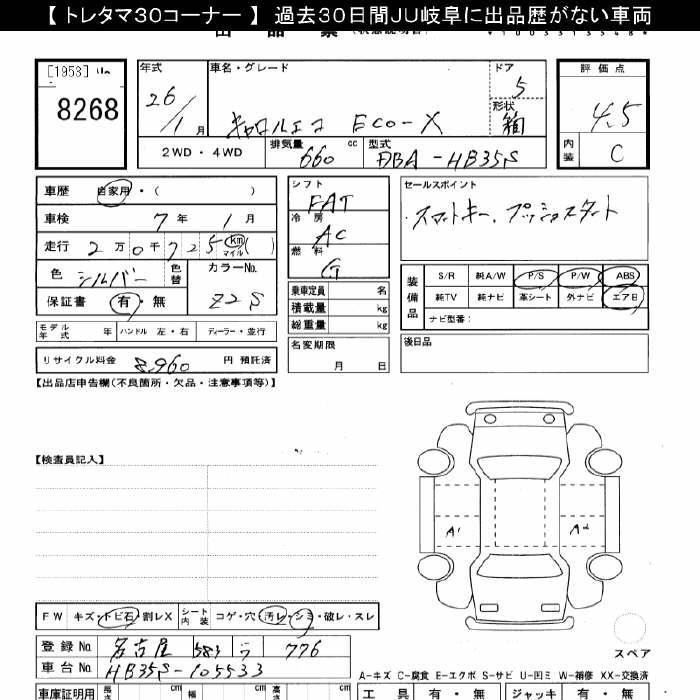 【 トレタマ30コーナー 】 過去30日間JU岐阜に出品歴がない車両
[1953]
8268
年式 車名・グレード ドア 評価点
26/1月 キャロルエコ ECO-X 5 4.5
形状 箱
2WD・4WD 排気量 660 cc 型式 DBA-HB35S 内装 C
車歴 自家用・( )
車検 7年 1月
走行 2万0千725 km マイル ( )
色 シルバー 色替 カラーNo. Z2S
保証書 有・無
モデル年式 年 ハンドル 左・右 ディーラー・並行
リサイクル料金 8,960 円 預託済
シフト FAT
冷房 AC
燃料 G
乗車定員 名
積載量 kg
総重量 kg
名変期限
月 日
セールスポイント
・スマートキー、プッシュスタート
装備品 S/R 純A/W P/S P/W ABS
純TV 純ナビ 革シート 外ナビ エアB
ナビ型番:
後日品
【出品店申告欄(不良箇所・欠品・注意事項等)】
【検査員記入】
A1 A2
FW キズ・トビ石・割レX シート内装 コゲ・穴・汚レ・シミ・破レ・スレ
登録No. 名古屋 583 ラ 776
車台No. HB35S-105533
スペア
A-キズ C-腐食 E-エクボ S-サビ U-凹ミ W-補修 XX-交換済
車庫証明用 長さ cm 幅 cm 高さ cm 工具 有・無 ジャッキ 有・無